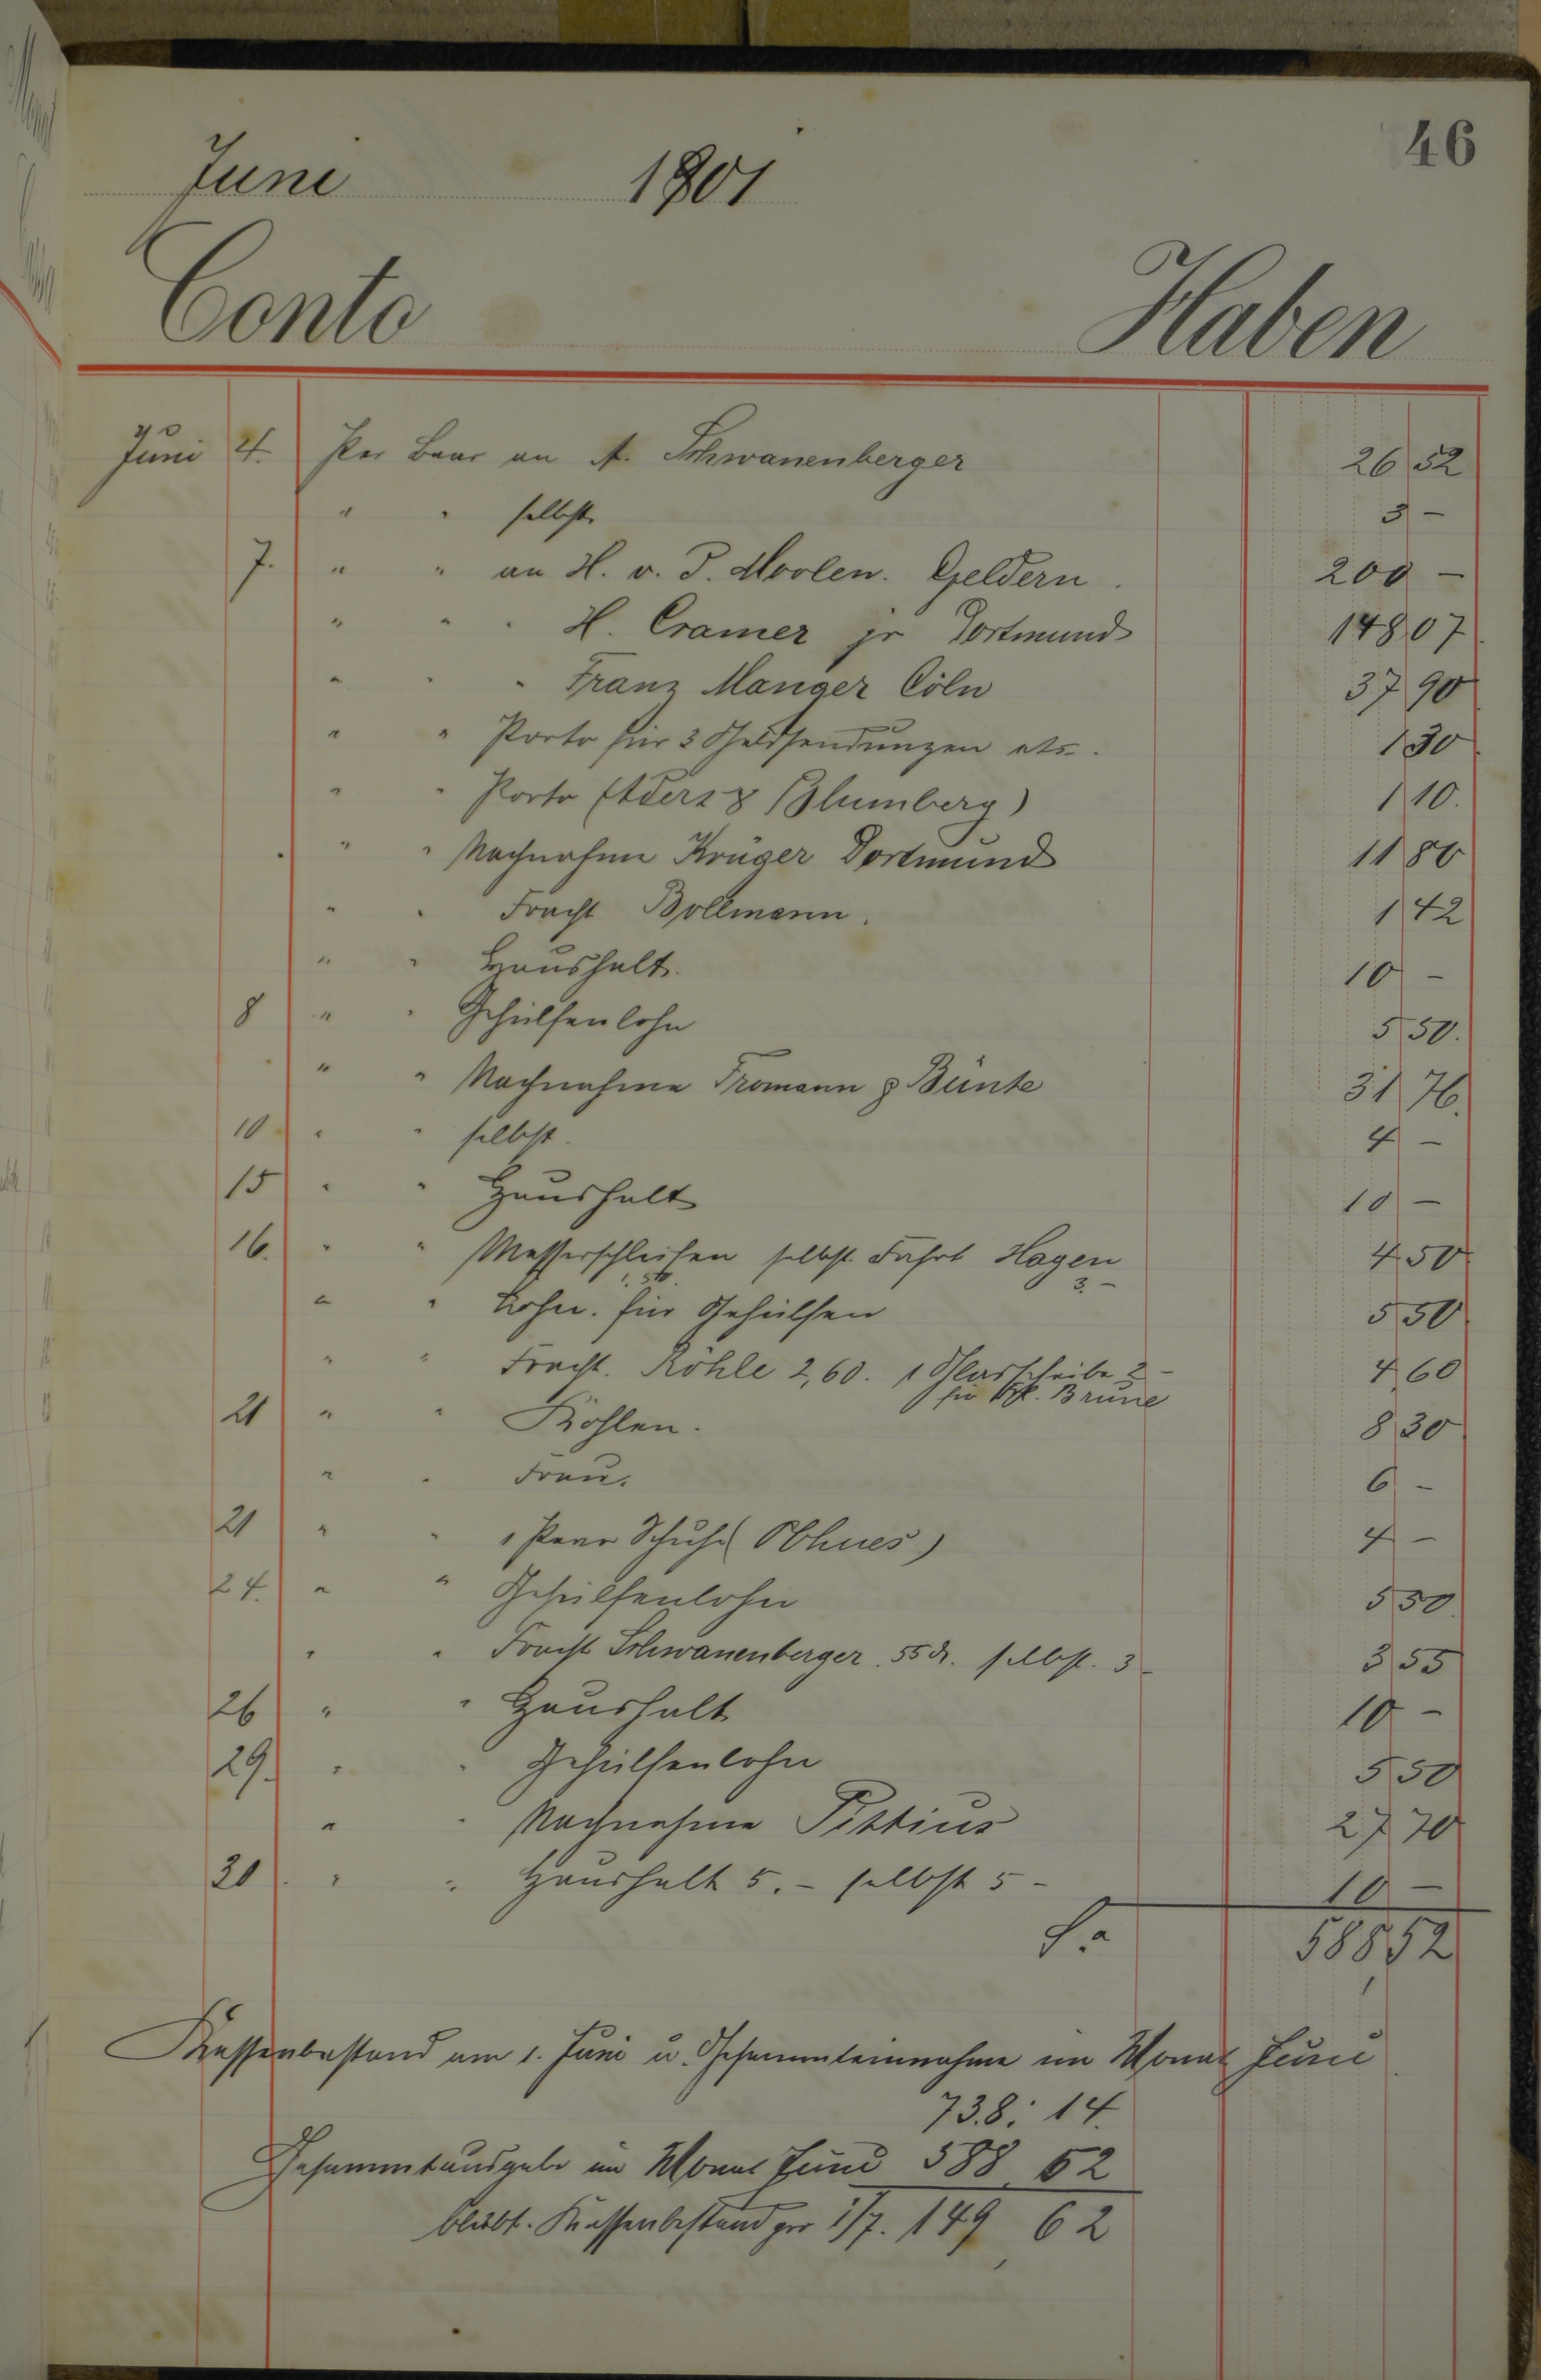 46
Juni 1901
Conto Haben
Juni 4. Per Baar an A. Schwanenberger 26 52
" " selbst 3 –
7. " " an H. v. d. Moolen. Geldern. 200 –
" " " H. Cramer jr Dortmund 148 07
" " " Franz Manger Cöln 37 90
" " Porto für 3 Geldsendungen etc. 1 30
" " Porto (Alders & Blumberg) 1 10.
" " Nachnahme Krüger Dortmund 11 80
" " Fracht Bollmann. 1 42
" " Haushalt. 10 –
8 " " Gehülfenlohn 5 50.
" " Nachnahme Tromann & Bünte 31 76.
10 " " selbst. 4 –
15 " " Haushalt 10 –
16. " " Messerschleifen selbst. Fahrt Hagen 4 50
1. 50 3. –
" " Lohn. für Gehülfen 5 50
" " Fracht. Köhle 2,60. 1 Glasscheibe 2 – 4 60
für Brune
21 " " Kohlen. 8 30
" " Frau. 6 –
21 " " 1 Paar Schuhe (Obhues) 4 –
24. " " Gehülfenlohn 5 50
" " Fracht Schwanenberger. 55 ₰. selbst. 3 – 3 55
26 " " Haushalt 10 –
29. " " Gehülfenlohn 5 50
" " Nachnahme Pistius 27 70
30 " " Haushalt 5. – selbst 5 – 10 –
Sa 588 52
Kassenbestand am 1. Juni u. Gesammteinnahme im Monat Juni
738: 14.
Gesammtausgabe im Monat Juni 588 52
bleibt. Kassenbestand per 1/7. 149 62